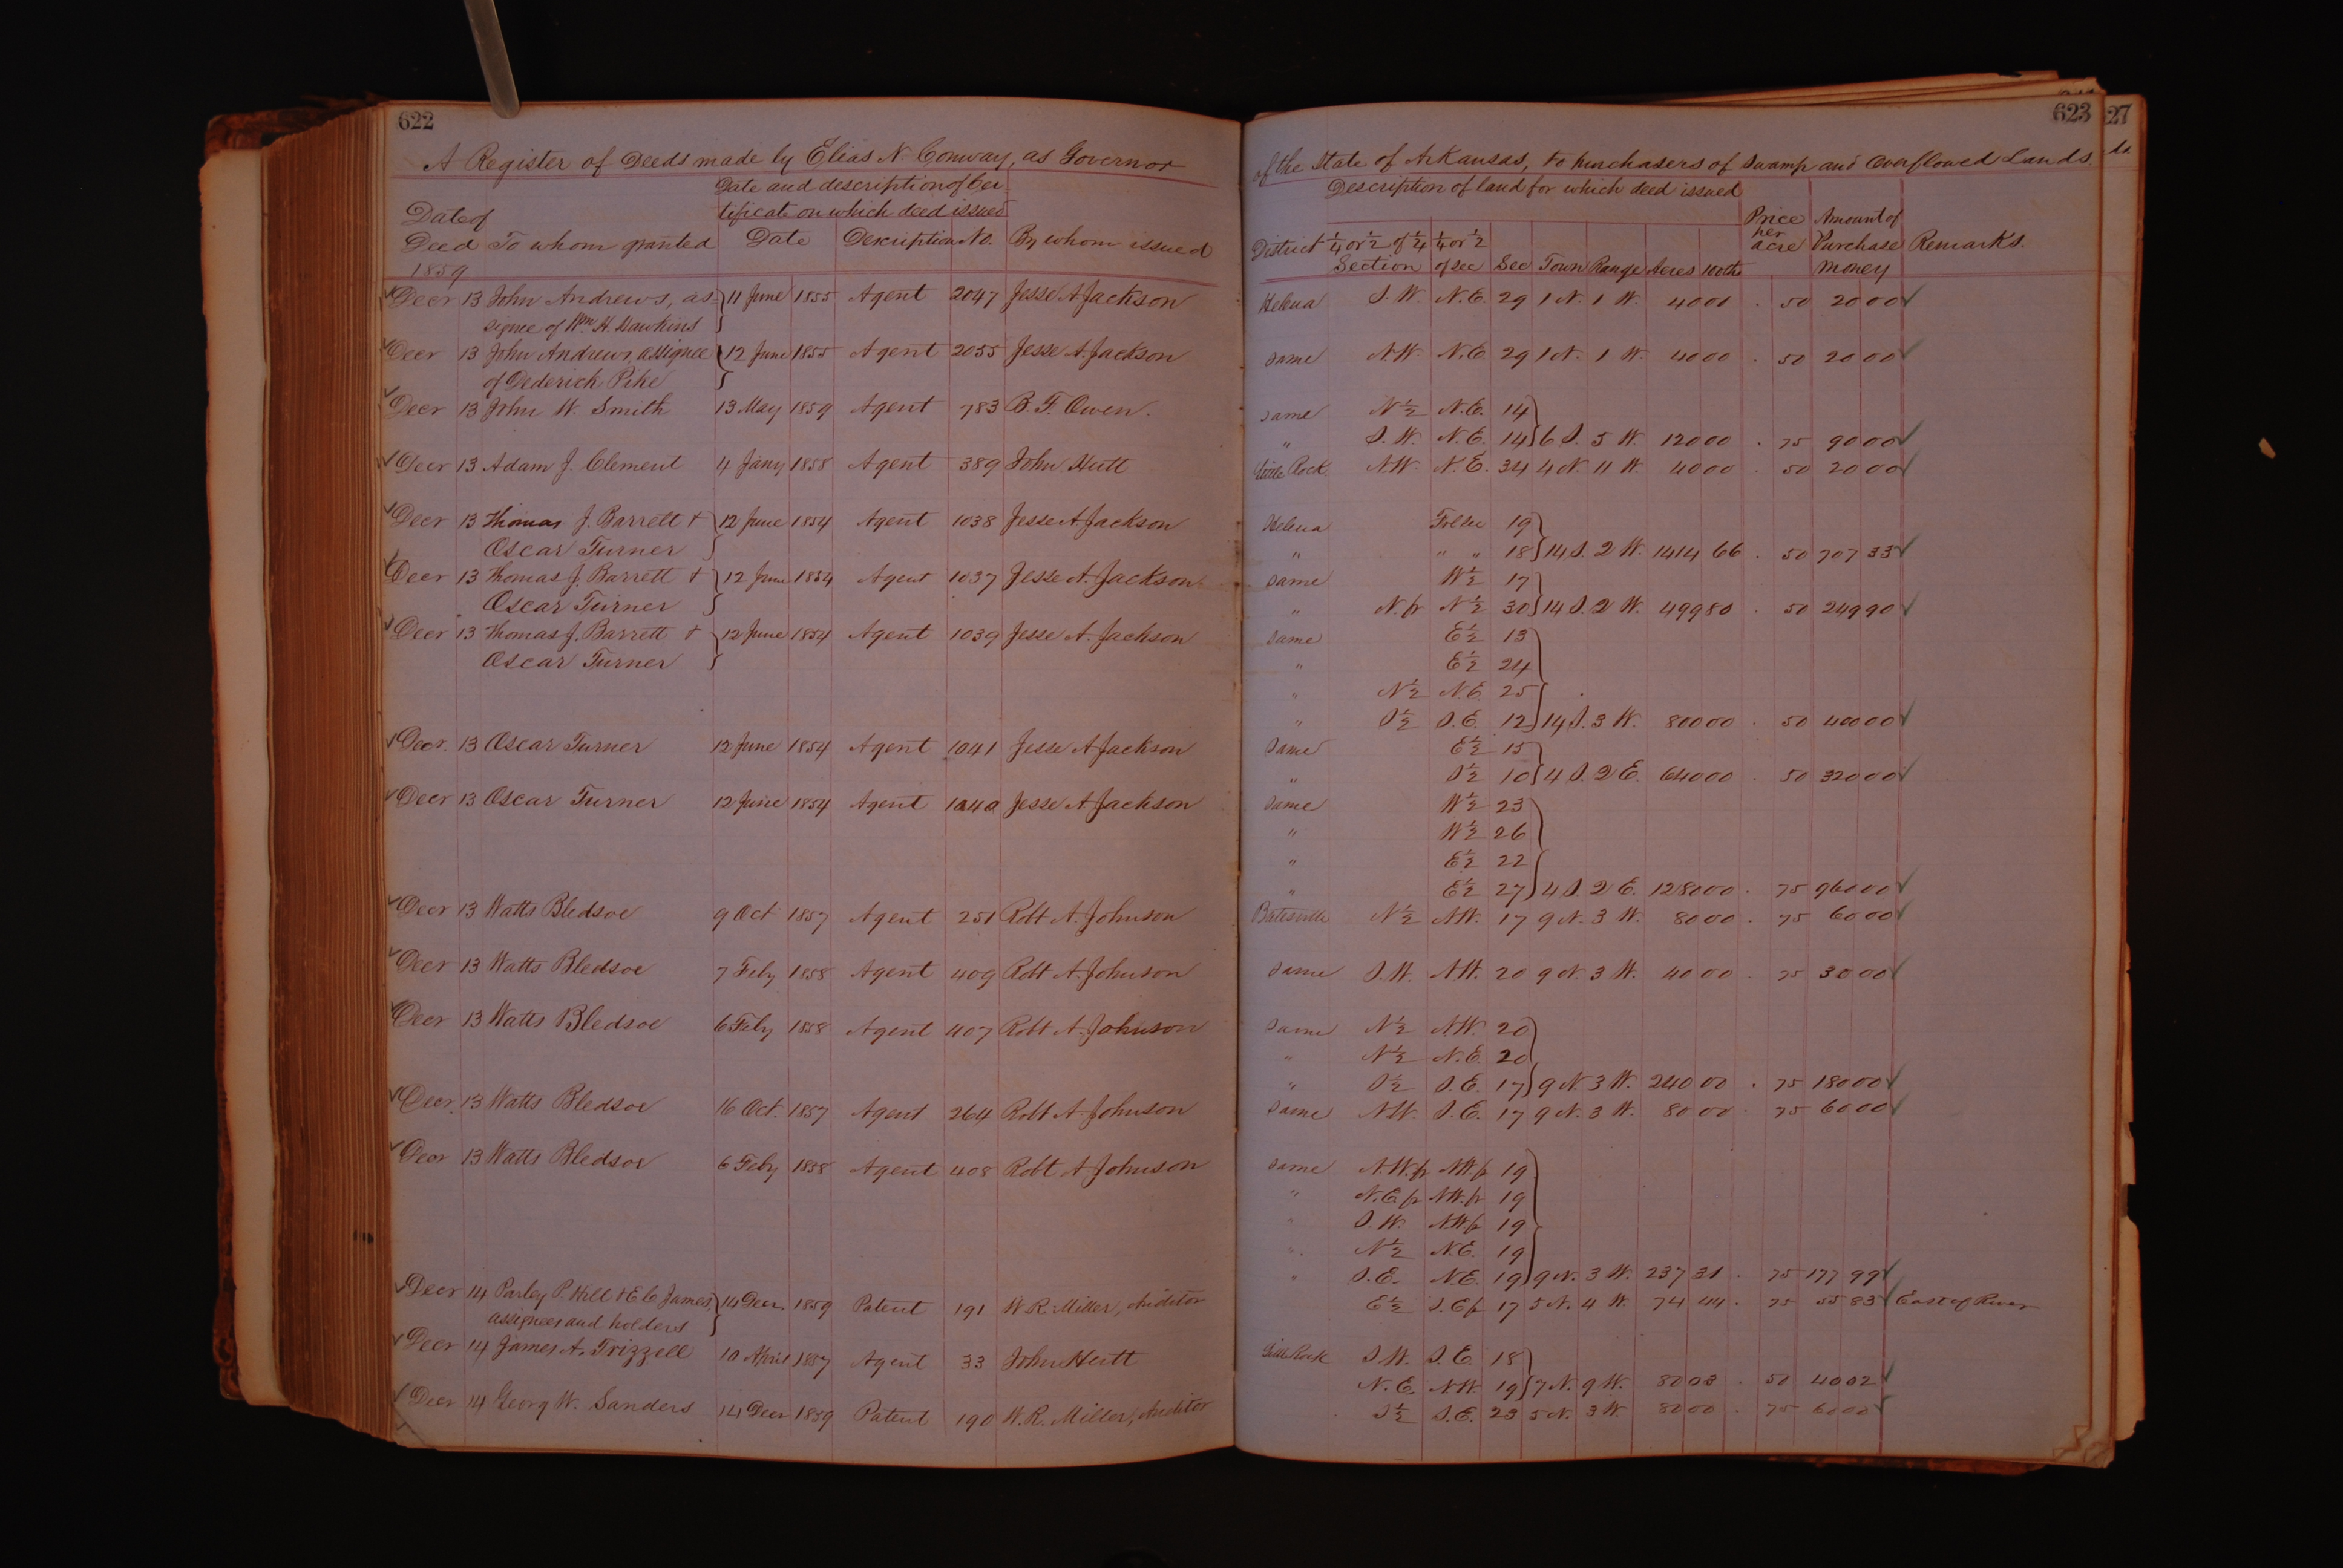 622
A Register of Deeds made by Elias N. Conway, as Governor
Date and description of Cer
tificate on which deed issued
Date of
Deed To whom granted Date Description No. By whom issued
1859
Decr 13 John Andrews, as 11 June 1855 Agent 2047 Jesse A Jackson
signee of Wm H. Hawkins
Decr 13 John Andrews, assignee 12 June 1855 Agent 2055 Jesse A. Jackson
of Dederick Pike
Decr 13 John W. Smith 13 May 1859 Agent 783 B. F. Owen.
Decr 13 Adam J. Clement 4 Jany 1858 Agent 389 John Hutt
Decr 13 Thomas J. Barrett + 12 June 1854 Agent 1038 Jesse A Jackson
Oscar Turner
Decr 13 Thomas J. Barrett + 12 June 1854 Agent 1037 Jesse A. Jackson
Oscar Turner
Decr 13 Thomas J. Barrett + 12 June 1854 Agent 1039 Jesse A. Jackson
Oscar Turner
Decr. 13 Oscar Turner 12 June 1854 Agent 1041 Jesse A Jackson
Decr 13 Oscar Turner 12 June 1854 Agent 1040 Jesse A Jackson
Decr 13 Watts Bledsoe 9 Oct 1857 Agent 251 Robt A. Johnson
Decr 13 Watts Bledsoe 7 Feby 1858 Agent 409 Robt A Johnson
Decr 13 Watts Bledsoe 6 Feby 1858 Agent 407 Robt A. Johnson
Decr. 13 Watts Bledsoe 16 Oct. 1857 Agent 264 Robt A. Johnson
Decr 13 Watts Bledsoe 6 Feby 1858 Agent 408 Robt A. Johnson
Decr 14 Parley P. Hill + E C James, 14 Decr. 1859 Patent 191 W R. Miller, Auditor
assignees and holders
Decr 14 James A. Frizzell 10 April 1857 Agent 33 John Hutt
Decr 14 Georg W. Sanders 14 Decr 1859 Patent 190 W. R. Miller, Auditor
623
27
of the State of Arkansas, to purchasers of Swamp and Overflowed Lands
ds
Description of land for which deed issued
Price per acre Amount of Purchase money Remarks.
District 1/4 or 1/2 of 1/4 Section 1/4 or 1/2 of sec Sec Town Range Acres 100ths
Helena S. W. N. E. 29 1 N. 1 W. 40 00 . 50 20 00
same N W. N. E 29 1 N. 1 W. 40 00 . 50 20 00
same N 1/2 N. E. 14
" S. W. N. E. 14 6 S. 5 W. 120 00 . 75 90 00
Little Rock N W. N. E. 34 4 N. 11 W. 40 00 . 50 20 00
Helena Frl Sec 19
" " " 18 14 S. 2 W. 1414 66 . 50 707 33
same W 1/2 17
" N. fr N 1/2 30 14 S. 2 W. 499 80 . 50 249 90
same E 1/2 13
" E 1/2 24
" N 1/2 N E 25
" S 1/2 S. E. 12 14 S. 3 W. 800 00 . 50 400 00
same E 1/2 15
" S 1/2 10 4 S. 2 E. 640 00 . 50 320 00
same W 1/2 23
" W 1/2 26
" E 1/2 22
" E 1/2 27 4 S 2 E. 1280 00 . 75 960 00
Batesville N 1/2 N W. 17 9 N. 3 W. 80 00 . 75 60 00
same S. W. N. W. 20 9 N. 3 W. 40 00 . 75 30 00
same N 1/2 N. W. 20
" N 1/2 N. E 20
" S 1/2 S. E. 17 9 N. 3 W. 240 00 . 75 180 00
same N W. S. E. 17 9 N. 3 W. 80 00 . 75 60 00
same N. W. fr N W fr 19
" N. E fr N W. fr 19
" S. W. N. W fr 19
" N 1/2 N. E. 19
" S. E. N E. 19 9 N. 3 W. 237 31 . 75 177 99
E 1/2 S. E fr 17 5 N. 4 W. 74 44 . 75 55 83 East of River
Little Rock S W. S. E. 18
N. E. N W 19 7 N. 9 W. 80 03 . 50 40 02
S 1/2 S. E. 23 5 N. 3 W. 80 00 . 75 60 00